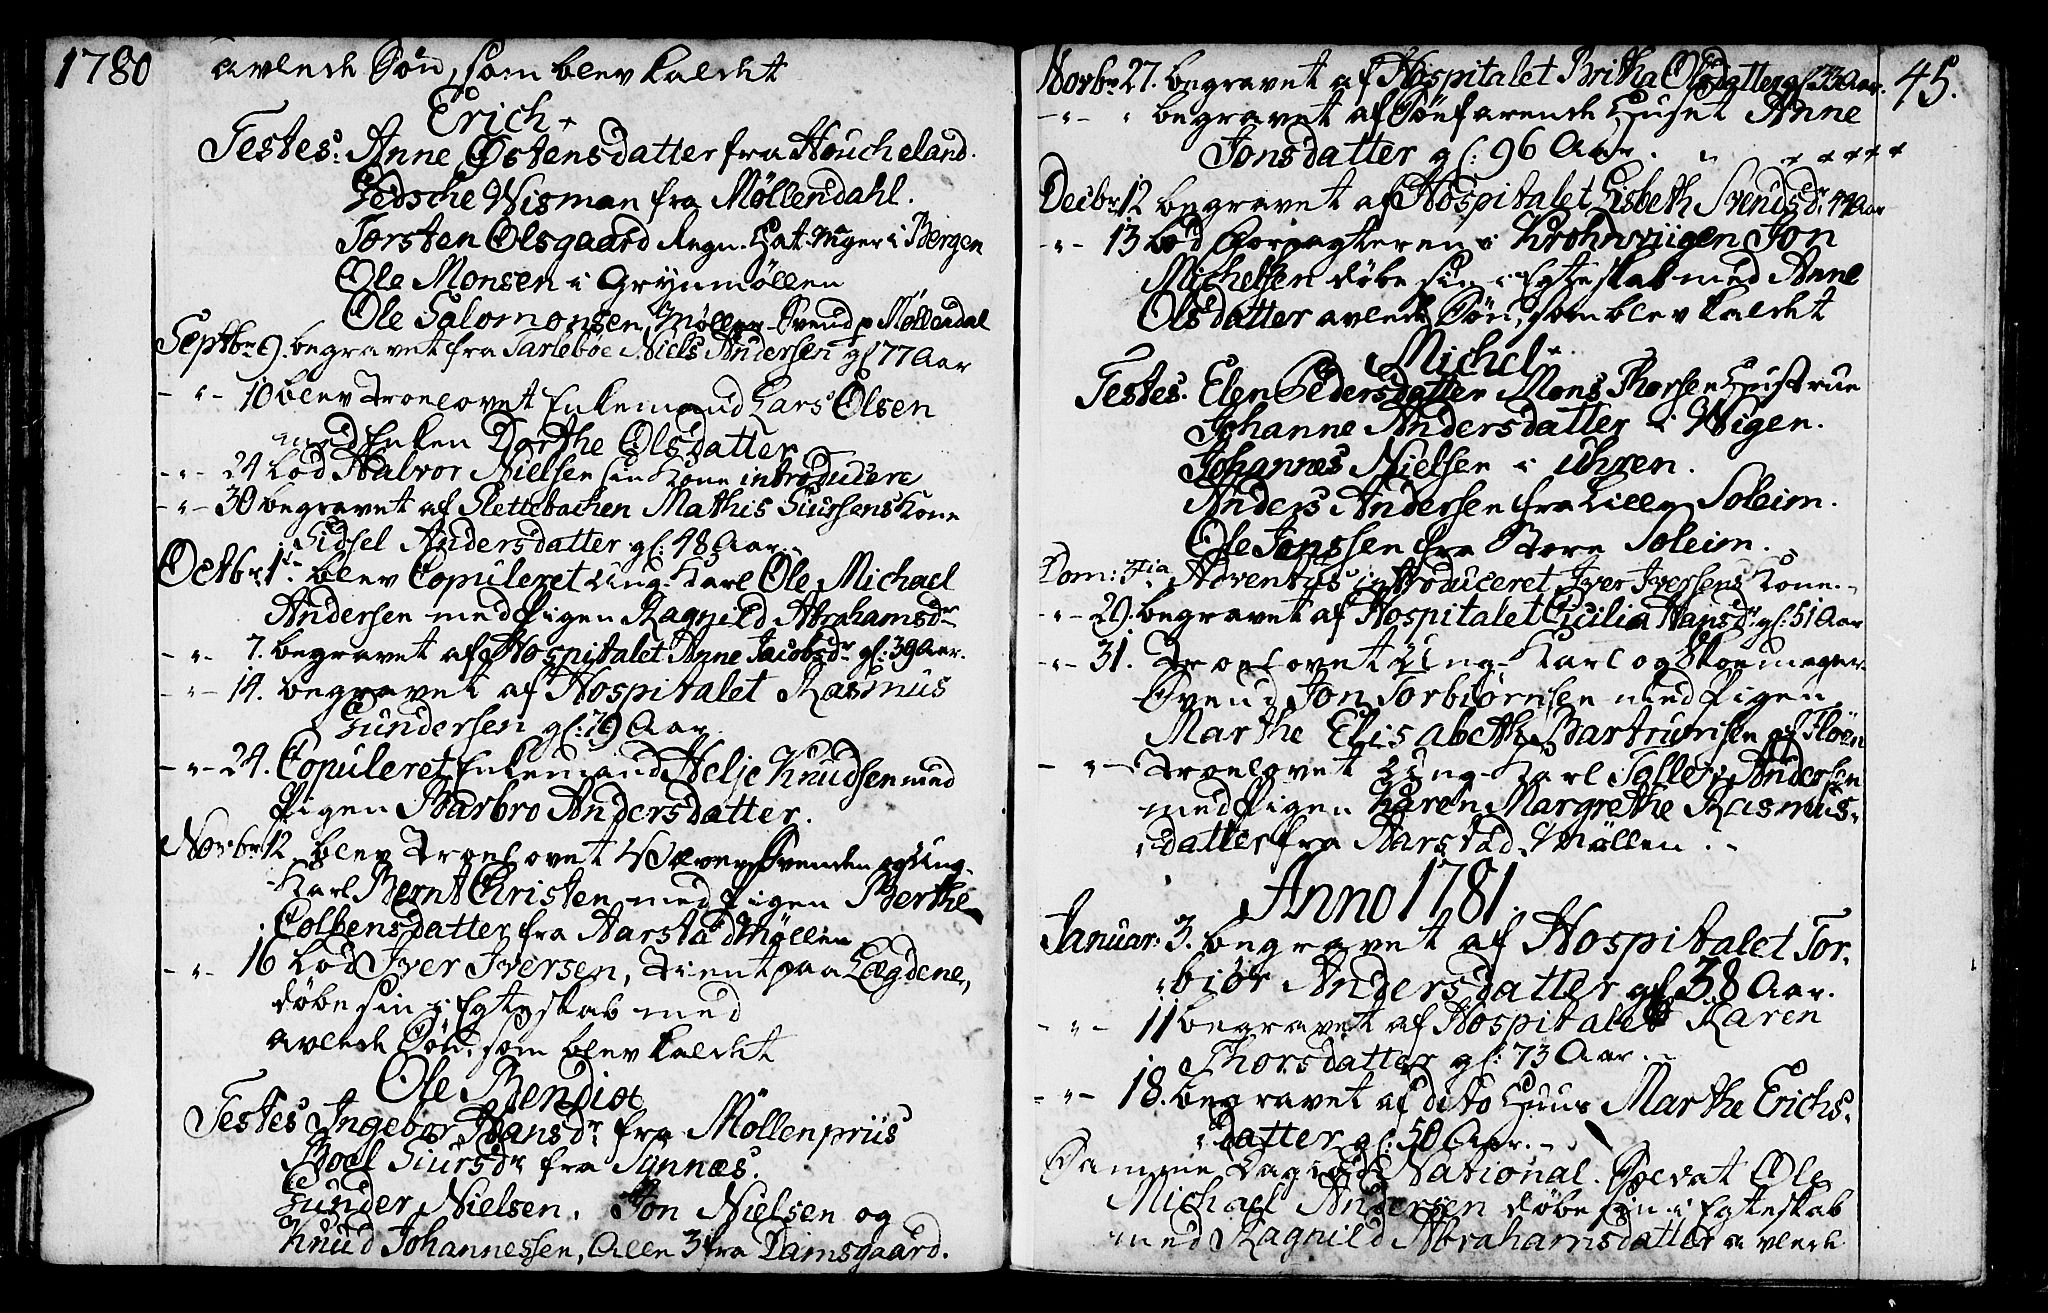 1780
avlede Søn, som blev kaldet
Erich
Testes: Anne Østensdatter fra Houcheland.
Gedsche Wisman fra Møllendahl.
Torsten Olsgaard Regn. Hat-Mager i Bergen
Ole Monsen i Grynmøllen
Ole Salomonsen, Møller-Svend p Møllendal
Septbr 9. begravet fra Tarleböe Niels Andersen gl 77 Aar
- " - 10 blev Troelovet Enkemand Lars Olsen
med Enken Dorthe Olsdatter
- " - 24 Lod Halvor Nielsen sin Kone introducere
- " - 30 begravet af Slettebachen Mathis Siursens Kone
Sidsel Andersdatter gl: 48 Aar
Octbr 1te blev Copuleret Ung-Karl Ole Michael
Andersen med Pigen Ragnild Abrahamsdr
- " - 7. begravet af Hospitalet Anne Jacobsdr gl: 39 Aar.
- " - 14. begravet af Hospitalet Rasmus
Gundersen gl: 79 Aar
- " - 24. Copuleret Enkemand Helje Knudsen med
Pigen Barbro Andersdatter.
Novbr 12 blev Troelovet Wæver Svenden og Ung-
Karl Bernt Christen med Pigen Berthe
Colbensdatter fra Aarstad Møllen
- " - 16 Lod Iver Iversen, Tient paa Lægdene,
døbe sin i Egteskab med
avlede Søn, som blev kaldet
Ole Bendix
Testes Ingebor Hansdr fra Möllenpriis
Boel Siursdr fra Synnæs.
Gunder Nielsen. Jon Nielsen og
Knud Johannessen, Alle 3 fra Damsgaard.
45.
Novbr 27. begravet af Hospitalet Britha Olsdatter gl. 73 Aar.
- " - " begravet af Söefarende Huset Anne
Jonsdatter gl: 96 Aar.
Decbr 12 begravet af Hospitalet Lisbeth Svendsdr 44 Aar
- " - 13 Lod Forpagteren i Krohnviigen Jon
Michelsen döbe sin i Egteskab med Anne
Olsdatter avlede Søn, som blev kaldet
Michel
Testes. Elen Pedersdatter Mons Thorsen Hustrue
Johanne Andersdatter i Wigen.
Johannes Nielsen i Uhren.
Anders Andersen fra Lille Soleim.
Ole Jonssen fra Store Soleim.
Dom: 3tia Adventus introduceret Iver Iversens Kone.
- " - 29. begravet af Hospitalet Cicilia Hansdr gl: 51 Aar
- " - 31. Troelovet Ung-Karl og Skoemager
Svend Jon Torbiörnsen med Pigen
Marthe Elisabeth Bartrumsen af Flöen
- " - Troelovet Ung-Karl Tollers Andersen
med Pigen Karen Margrethe Rasmus-
datter fra Aarstad Møllen.
Anno 1781.
Januar: 3. begravet af Hospitalet Tor-
biör Andersdatter gl 38 Aar.
- " - 11 begravet af Hospitalet Karen
Thorsdatter gl: 73 Aar.
- " - 18. begravet af dito Huus Marthe Erichs-
datter gl: 50 Aar.
Samme Dag lod National-Soldat Ole
Michael Andersen döbe sin i Egteskab
med Ragnild Abrahamsdatter avlede